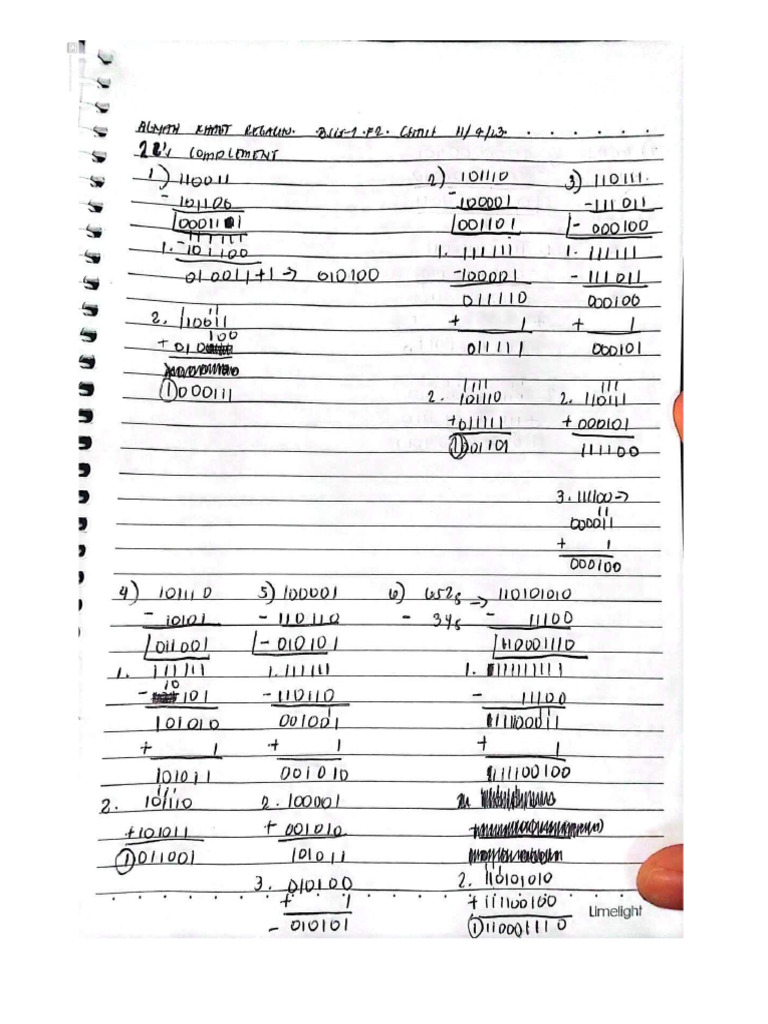 11/9/23
2's COMPLEMENT
1) 110011
- 101100
000111
1. 111111
- 101100
010011+1 → 010100
2. 110011
+ 010100
① 000111
2) 101110
- 100001
001101
1. 111111
- 100001
011110
+ 1
011111
2. 1111
101110
+ 011111
① 001101
3) 110111.
- 111011
- 000100
1. 111111
- 111011
000100
+ 1
000101
2. 111
110111
+ 000101
111100
3. 111100 →
11
000011
+ 1
000100
4) 101110
- 10101
011001
1. 111111
- 10101
101010
+ 1
101011
2. 101110
+ 101011
① 011001
5) 100001
- 110110
- 010101
1. 111111
- 110110
001001
+ 1
001010
2. 100001
+ 001010
101011
3. 010100
+ 1
- 010101
6) 652₈ → 110101010
- 34₈ - 11100
110001110
1. 111111111
- 11100
111100011
+ 1
111100100
2. 110101010
+ 111100100
① 110001110
Limelight